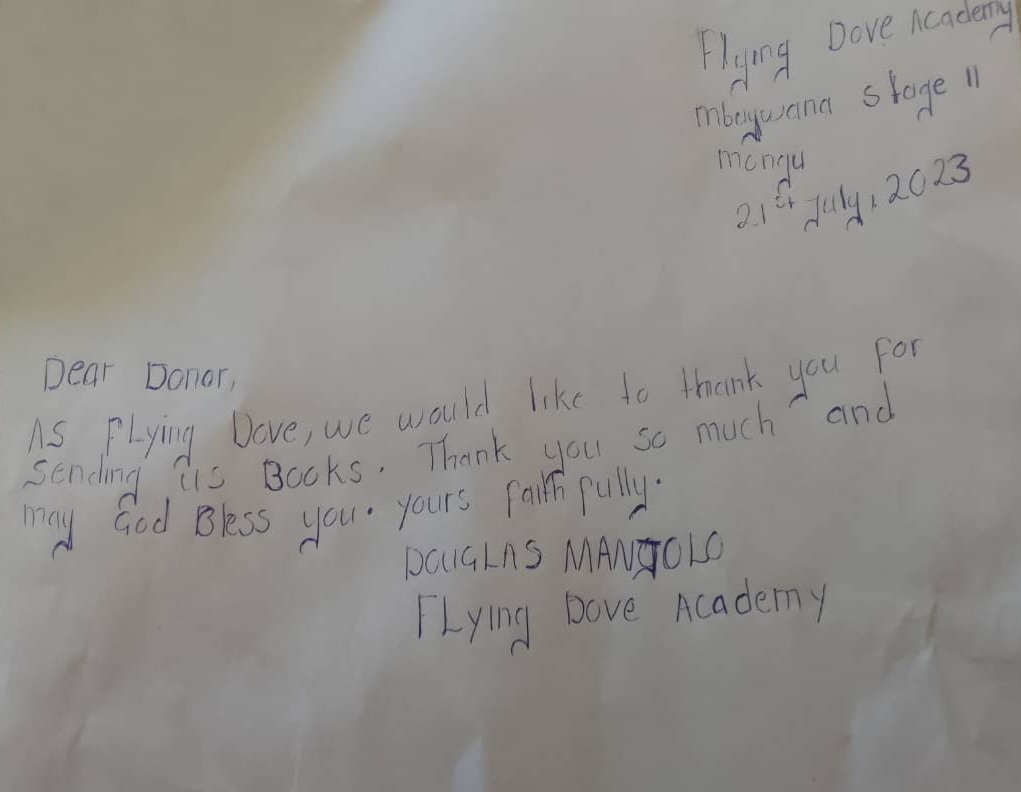 Flying Dove Academy
mbuywana stage 11
mongu
21st July, 2023
Dear Donor,
As Flying Dove, we would like to thank you for
sending us Books. Thank you so much and
may God Bless you. yours faithfully.
DOUGLAS MANGOLO
FLying Dove Academy